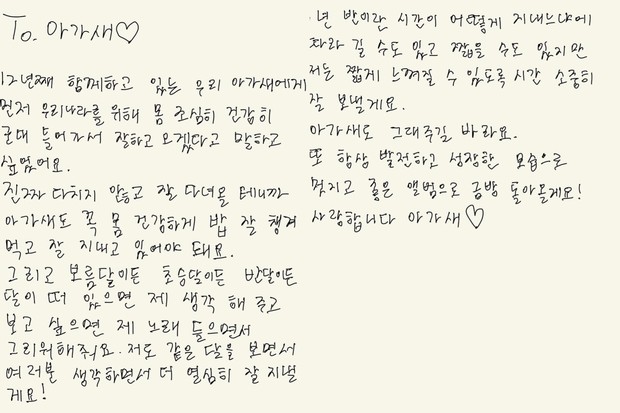 To. 아가새♡
12년째 함께하고 있는 우리 아가새에게
먼저 우리나라를 위해 몸 조심히 건강히
군대 들어가서 잘하고 오겠다고 말하고
싶었어요.
진짜 다치지 않고 잘 다녀올 테니까
아가새도 꼭 몸 건강하게 밥 잘 챙겨
먹고 잘 지내고 있어야 돼요.
그리고 보름달이든 초승달이든 반달이든
달이 떠 있으면 제 생각 해 주고
보고 싶으면 제 노래 들으면서
그리워해줘요. 저도 같은 달을 보면서
여러분 생각하면서 더 열심히 잘 지낼
게요!
년 반이란 시간이 어떻게 지내느냐에
따라 길 수도 있고 짧을 수도 있지만
저는 짧게 느껴질 수 있도록 시간 소중히
잘 보낼게요.
아가새도 그래주길 바라요.
또 항상 발전하고 성장한 모습으로
멋지고 좋은 앨범으로 금방 돌아올게요!
사랑합니다 아가새♡